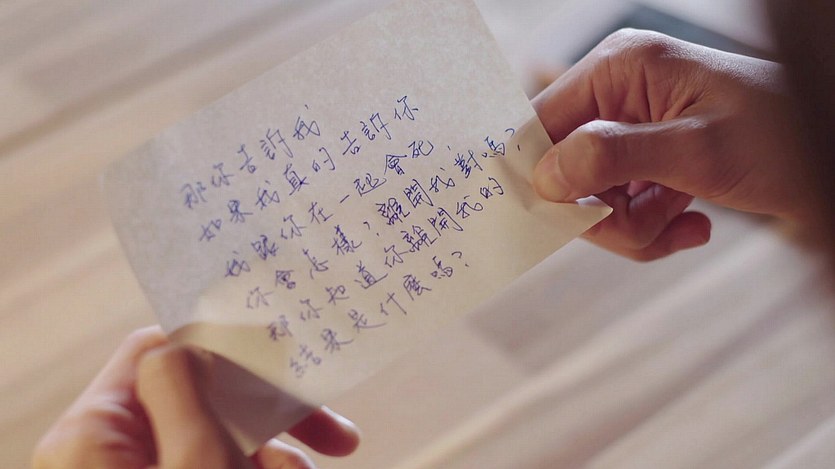 那你告訴我
如果我真的告訴你
我跟你在一起會死,
你會怎樣,離開我,對嗎?
那你知道你離開我的
結果是什麼嗎?